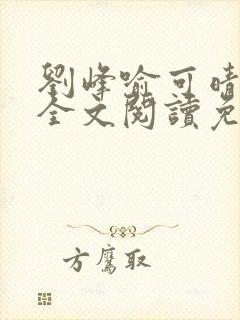 劉峰喻可晴
全文閱讀免
方鷹取